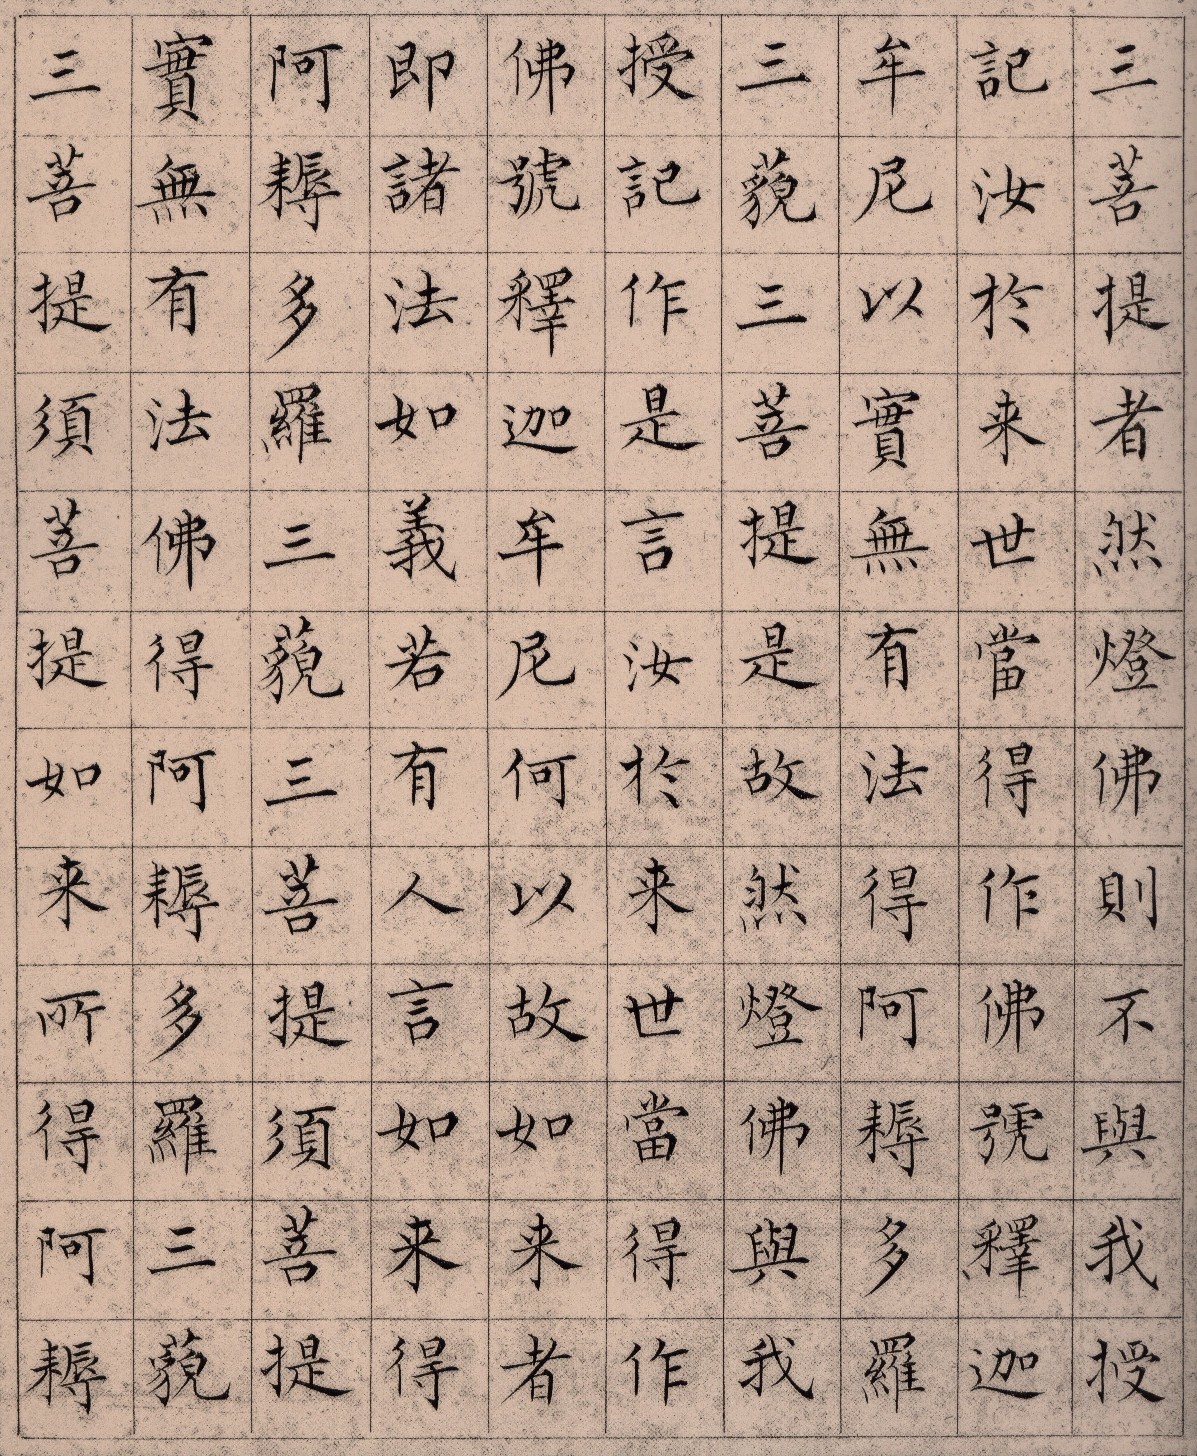 三菩提者然燈佛則不與我授
記汝於来世當得作佛號釋迦
牟尼以實無有法得阿耨多羅
三藐三菩提是故然燈佛與我
授記作是言汝於来世當得作
佛號釋迦牟尼何以故如来者
即諸法如義若有人言如来得
阿耨多羅三藐三菩提須菩提
實無有法佛得阿耨多羅三藐
三菩提須菩提如来所得阿耨